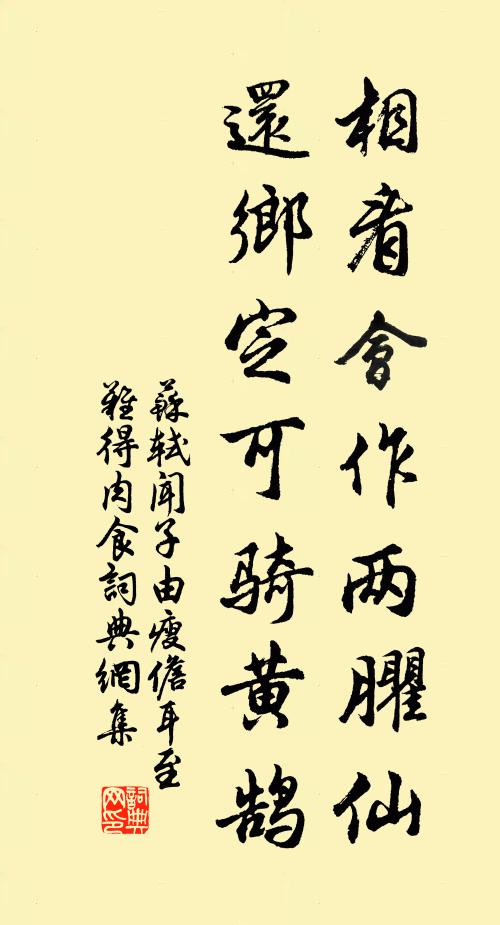 相看會作两臞仙
還鄉定可騎黃鹄
蘇軾聞子由瘦儋耳至
難得肉食詞典網集
詞典
网印